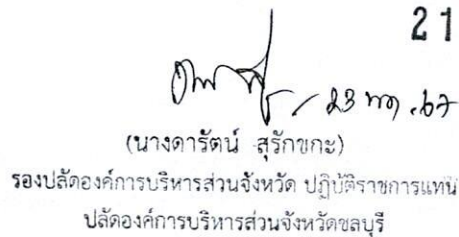 21
23 พค. 67
(นางดารัตน์ สุรักขกะ)
รองปลัดองค์การบริหารส่วนจังหวัด ปฏิบัติราชการแทน
ปลัดองค์การบริหารส่วนจังหวัดชลบุรี